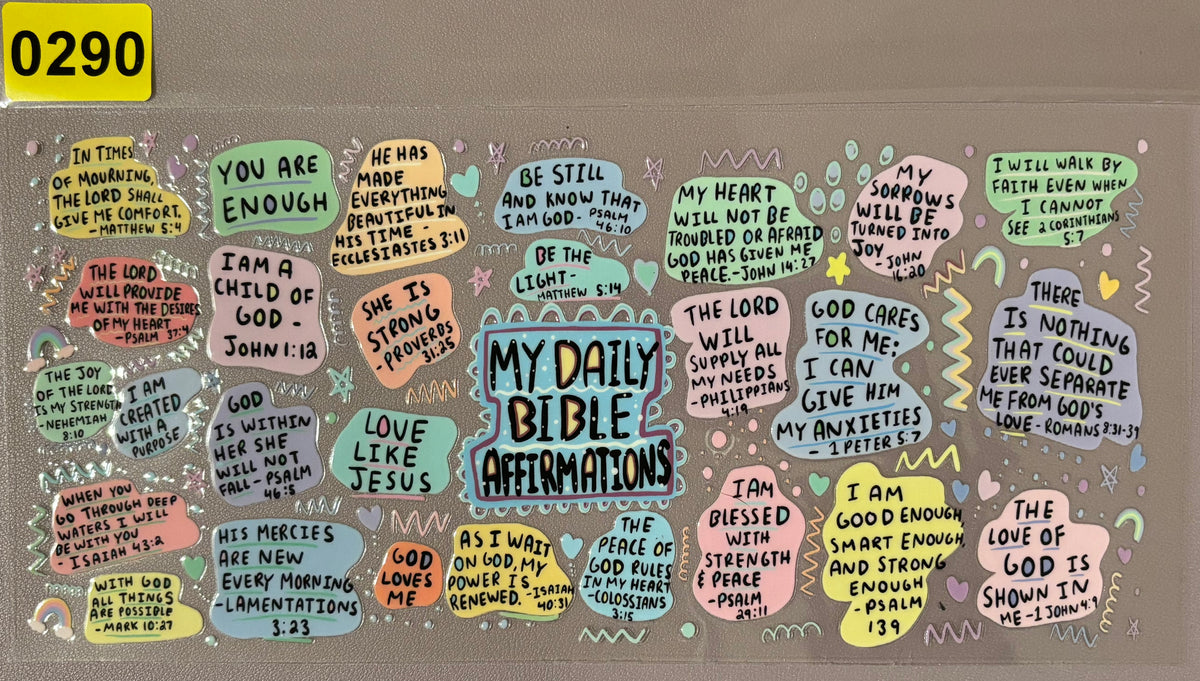 0290
IN TIMES
OF MOURNING,
THE LORD SHALL
GIVE ME COMFORT.
-MATTHEW 5:4
YOU ARE
ENOUGH
HE HAS
MADE
EVERYTHING
BEAUTIFUL IN
HIS TIME -
ECCLESIASTES 3:11
BE STILL
AND KNOW THAT
I AM GOD- PSALM
46:10
MY HEART
WILL NOT BE
TROUBLED OR AFRAID
GOD HAS GIVEN ME
PEACE.-JOHN 14:27
MY
SORROWS
WILL BE
TURNED INTO
JOY -JOHN
16:20
I WILL WALK BY
FAITH EVEN WHEN
I CANNOT
SEE 2 CORINTHIANS
5:7
THE LORD
WILL PROVIDE
ME WITH THE DESIRES
OF MY HEART
-PSALM 37:4
I AM A
CHILD OF
GOD -
JOHN 1:12
SHE IS
STRONG
-PROVERBS
31:25
BE THE
LIGHT-
MATTHEW 5:14
THE LORD
WILL
SUPPLY ALL
MY NEEDS
-PHILIPPIANS
4:19
GOD CARES
FOR ME:
I CAN
GIVE HIM
MY ANXIETIES
- 1 PETER 5:7
THERE
IS NOTHING
THAT COULD
EVER SEPARATE
ME FROM GOD'S
LOVE-ROMANS 8:31-39
THE JOY
OF THE LORD
IS MY STRENGTH
-NEHEMIAH
8:10
I AM
CREATED
WITH A
PURPOSE
GOD
IS WITHIN
HER SHE
WILL NOT
FALL-PSALM
46:5
LOVE
LIKE
JESUS
MY DAILY
BIBLE
AFFIRMATIONS
WHEN YOU
GO THROUGH DEEP
WATERS I WILL
BE WITH YOU
-ISAIAH 43:2
HIS MERCIES
ARE NEW
EVERY MORNING
-LAMENTATIONS
3:23
GOD
LOVES
ME
AS I WAIT
ON GOD, MY
POWER IS
RENEWED. -ISAIAH
40:31
THE
PEACE OF
GOD RULES
IN MY HEART
-COLOSSIANS
3:15
I AM
BLESSED
WITH
STRENGTH
& PEACE
-PSALM
29:11
I AM
GOOD ENOUGH,
SMART ENOUGH,
AND STRONG
ENOUGH
-PSALM
139
THE
LOVE OF
GOD IS
SHOWN IN
ME -1 JOHN 4:9
WITH GOD
ALL THINGS
ARE POSSIBLE
-MARK 10:27